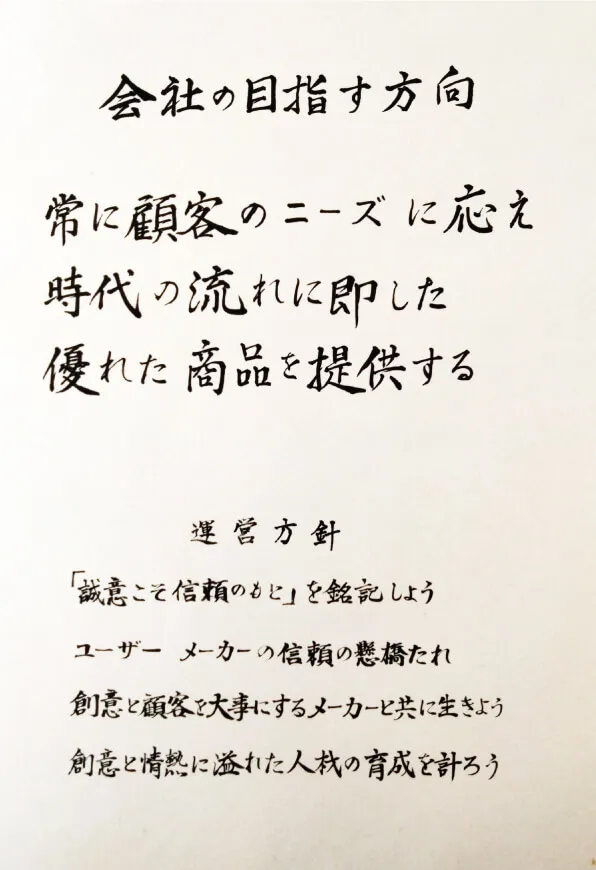 会社の目指す方向
常に顧客のニーズに応え
時代の流れに即した
優れた商品を提供する
運営方針
「誠意こそ信頼のもと」を銘記しよう
ユーザー メーカーの信頼の懸橋たれ
創意と顧客を大事にするメーカーと共に生きよう
創意と情熱に溢れた人材の育成を計ろう